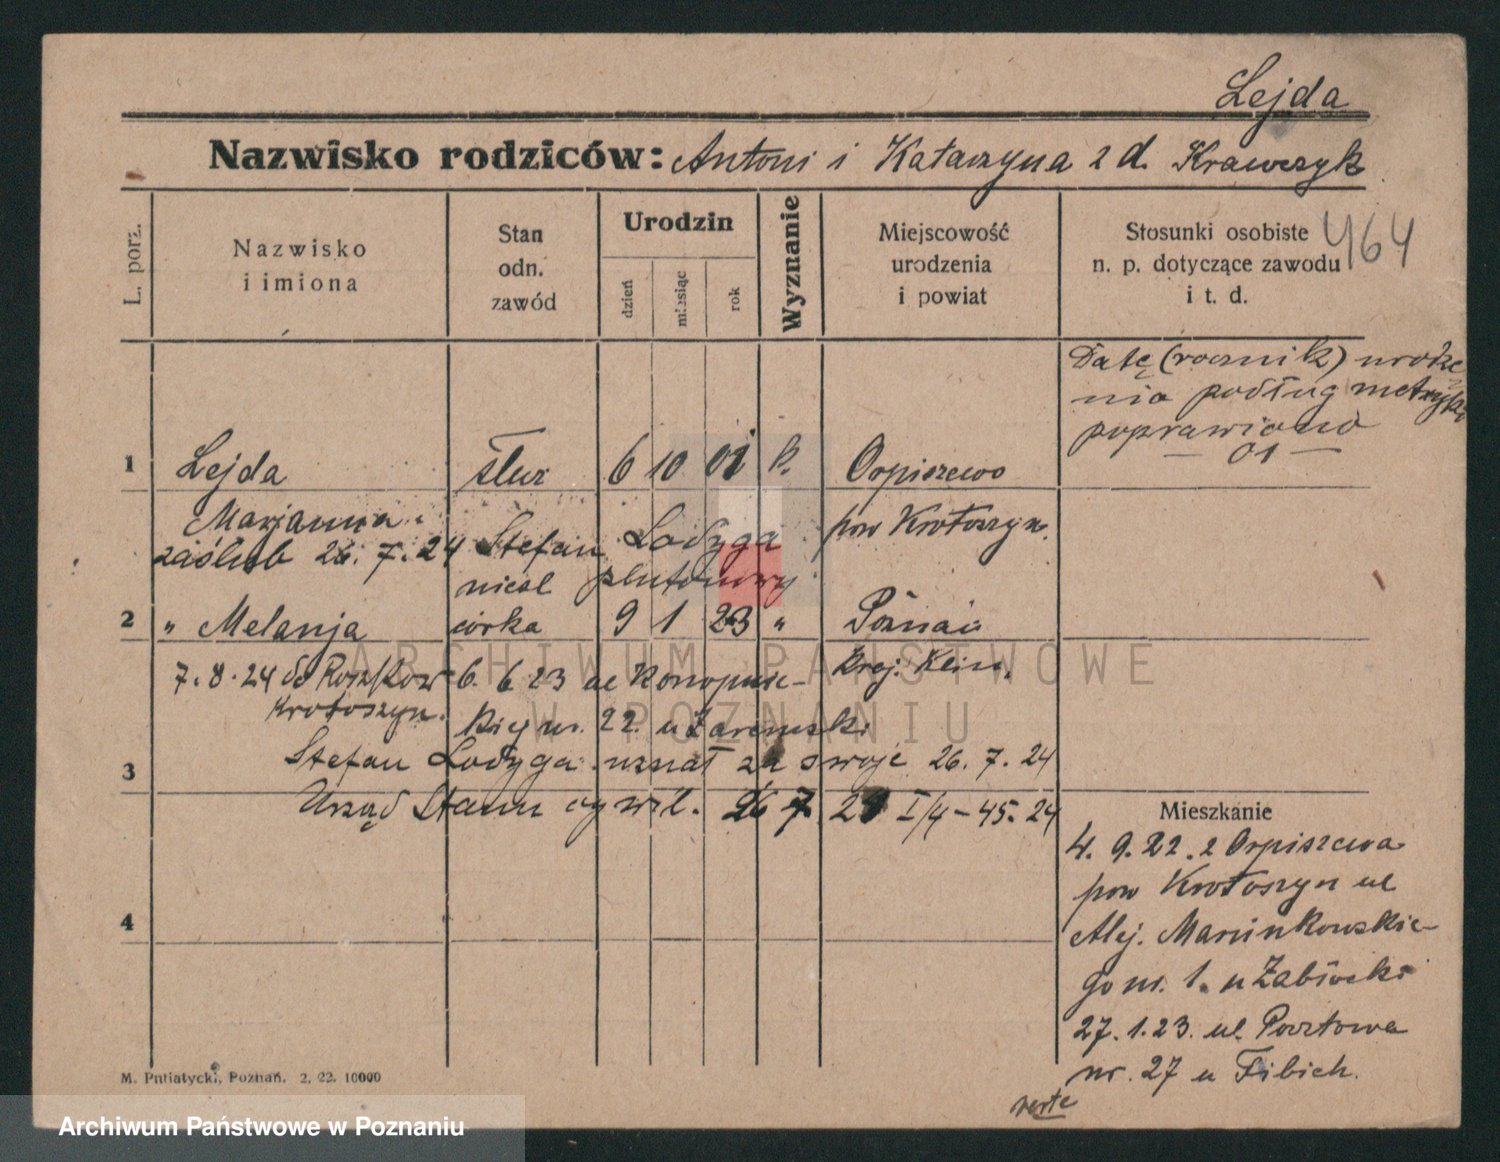 Lejda
Nazwisko rodziców: Antoni i Katarzyna z d. Krawczyk
L. porz.
Nazwisko
i imiona
Stan
odn.
zawód
Urodzin
dzień
miesiąc
rok
Wyznanie
Miejscowość
urodzenia
i powiat
Stosunki osobiste
n. p. dotyczące zawodu
i t. d.
464
Datę (rocznik) urodze
nia podług metryki
poprawiono
— 01 —
1 Lejda służ 6 10 01 k. Orpiszewo
Marjanna pow Krotoszyn.
zaślub 26. 7. 24 Stefan Lodyga
niesl plutonowy
2 " Melanja córka 9 1 23 " Poznań
Kraj. Klin.
7. 8. 24 do Roszkow 6. 6 23 ul Konopnic-
Krotoszyn. kiej nr. 22. u Zaremski
Stefan Lodyga uznał za swoje 26. 7. 24
3
Urząd Stanu cywil. 26 7. 24 I/4 - 45. 24
4
Mieszkanie
4. 9. 22. z Orpiszewa
pow Krotoszyn ul
Alej. Marcinkowskie-
go nr. 1. u Żabiocki
27. 1. 23. ul. Pocztowa
nr. 27 u Fibich.
verte
M. Putiatycki, Poznań. 2. 22. 10000
ARCHIWUM PAŃSTWOWE
W POZNANIU
Archiwum Państwowe w Poznaniu